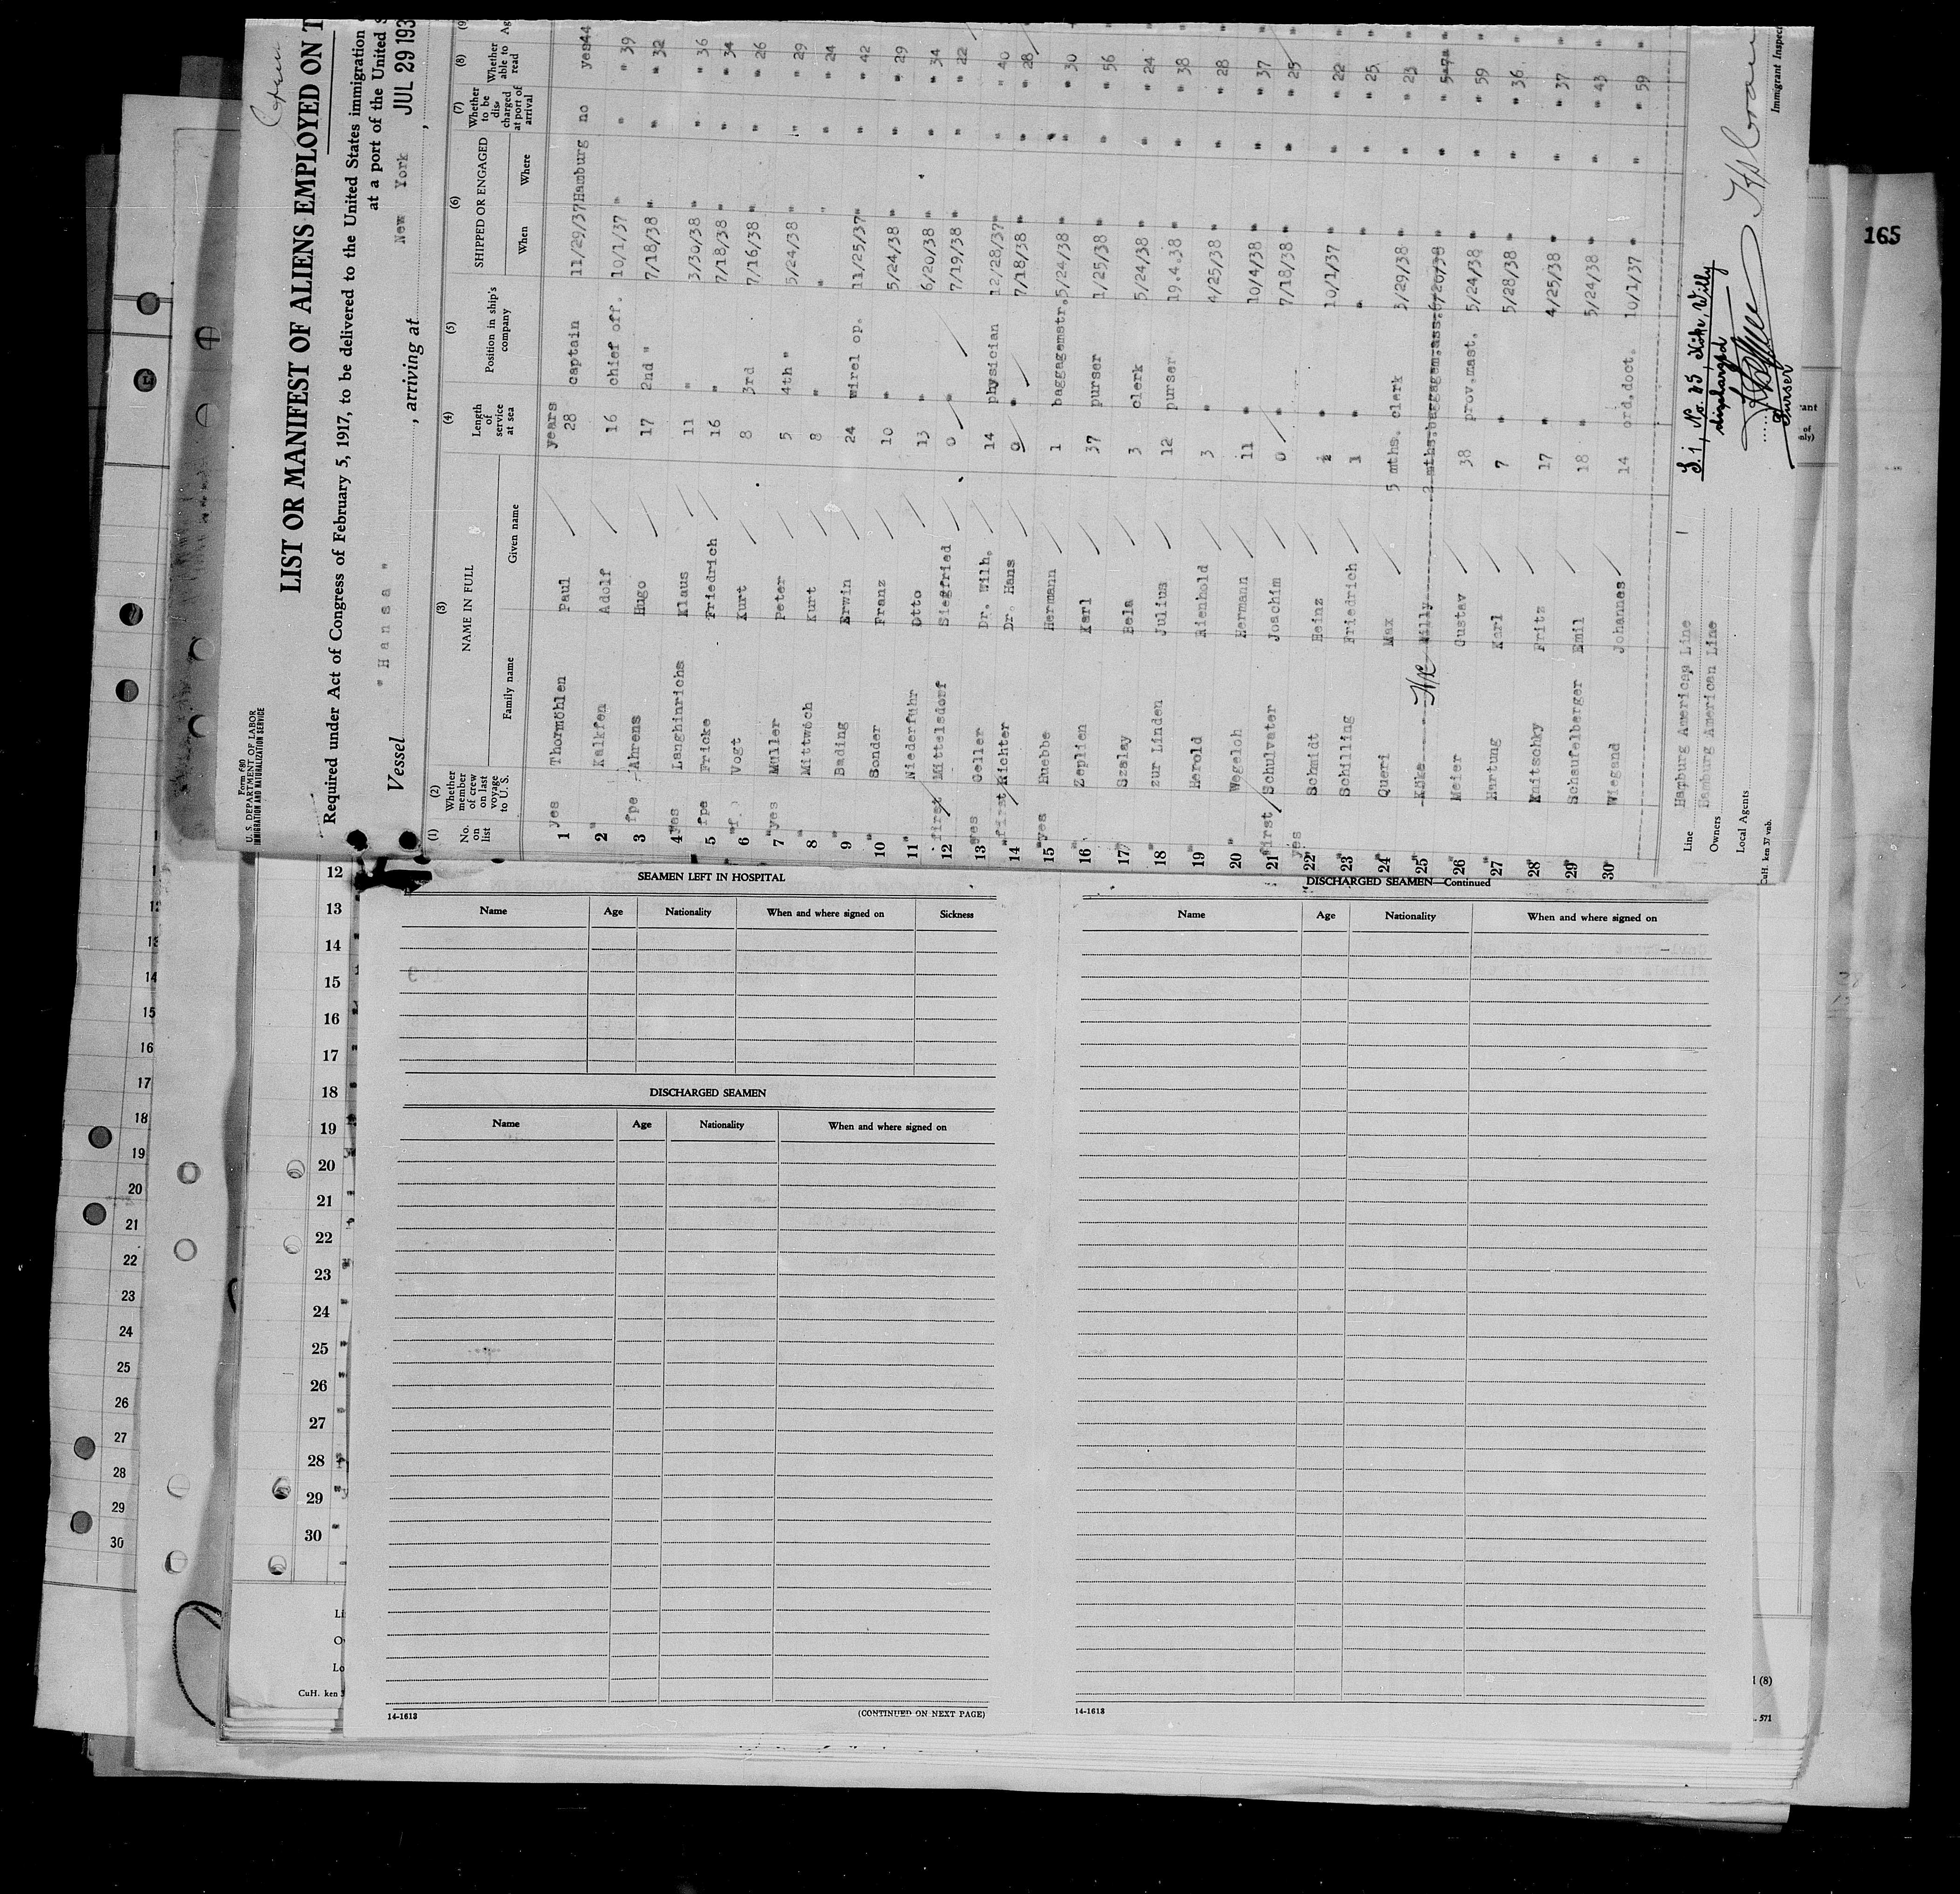 Form 680
U. S. DEPARTMENT OF LABOR
IMMIGRATION AND NATURALIZATION SERVICE
LIST OR MANIFEST OF ALIENS EMPLOYED ON T
Required under Act of Congress of February 5, 1917, to be delivered to the United States immigration
at a port of the United S
Vessel "Hansa", arriving at New York JUL 29 193
(1) (2) (3) (4) (5) (6) (7) (8) (9)
No. on list Whether member of crew on last voyage to U. S. NAME IN FULL Length of service at sea Position in ship's company SHIPPED OR ENGAGED Whether to be discharged at port of arrival Whether able to read Ag
Family name Given name When Where
1 yes Thormöhlen Paul years 28 captain 11/29/37 Hamburg no yes 44
2 " Kalkfen Adolf 16 chief off. 10/1/37 " " " 39
3 fpe Ahrens Hugo 17 2nd " 7/18/38 " " " 32
4 yes Langhinrichs Klaus 11 " 3/30/38 " " " 36
5 fpe Fricke Friedrich 16 " 7/18/38 " " " 34
6 "f. Vogt Kurt 8 3rd 7/16/38 " " " 26
7 "yes Müller Peter 5 4th " 5/24/38 " " " 29
8 " Mittwoch Kurt 8 " " " " " 24
9 " Bading Erwin 24 wirel op. 11/25/37 " " " 42
10 " Sonder Franz 10 " 5/24/38 " " " 29
11 " Niederführ Otto 13 " 6/20/38 " " " 34
12 first Mittelsdorf Siegfried 0 " 7/19/38 " " " 22
13 yes Geller Dr. Wilh. 14 physician 12/28/37 " " " 40
14 "first Richter Dr. Hans 0 " 7/18/38 " " " 28
15 "yes Huebbe Hermann 1 baggagemstr. 5/24/38 " " " 30
16 " Zeplien Karl 37 purser 1/25/38 " " " 56
17 " Szalay Bela 3 clerk 5/24/38 " " " 24
18 " zur Linden Julius 12 purser 19.4.38 " " " 38
19 " Herold Rienhold 3 " 4/25/38 " " " 28
20 " Wegeloh Hermann 11 " 10/4/38 " " " 37
21 first Schulvater Joachim 0 " 7/18/38 " " " 25
22 yes Schmidt Heinz 2 " 10/1/37 " " " 22
23 " Schilling Friedrich 1 " " " " " 25
24 " Queri Max 5 mths. clerk 3/29/38 " " " 23
25 " Köke Willy 2 mths. baggagem.ass. 6/20/38 " " "
26 " Meier Gustav 38 prov.mast. 5/24/38 " " " 59
27 " Hartung Karl 7 " 5/28/38 " " " 36
28 " Knitschky Fritz 17 " 4/25/38 " " " 37
29 " Schaufelberger Emil 18 " 5/24/38 " " " 43
30 " Wiegand Johannes 14 ord.doct. 10/1/37 " " " 59
Line Hamburg American Line
Owners Hamburg American Line
Local Agents
CuH. ken 37 vnb.
displaced
Purser
Immigrant Inspec
165
SEAMEN LEFT IN HOSPITAL
Name Age Nationality When and where signed on Sickness
DISCHARGED SEAMEN
Name Age Nationality When and where signed on
14-1613 (CONTINUED ON NEXT PAGE)
DISCHARGED SEAMEN—Continued
Name Age Nationality When and where signed on
14-1613
12
13
14
15
16
17
18
19
20
21
22
23
24
25
26
27
28
29
30
CuH. ken 3
14
15
16
17
18
19
20
21
22
23
24
25
26
27
28
29
30
l (8)
571